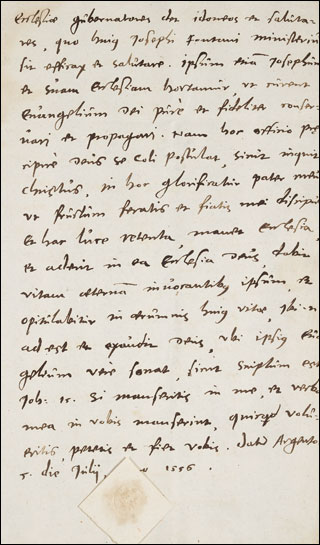 Ecclesiæ gubernatores det idoneos et saluta-
res, quo huius Josephi Fontani ministeriũ
sit efficax et salutare. Ipsum etiã Josephum
et suam Ecclesiam hortamur, ut curent
Euangelium Dei pure et fideliter conser-
uari et propagari. Nam hoc officio præ
cipue Deus se coli postulat, sicut inquit
Christus, in hoc glorificatur pater meus
ut fructum feratis et fiatis mei discipuli
Et hac luce retenta, manet Ecclesia,
et aderit in ea Ecclesia Deus, dabit
vitam æternã inuocantibus ipsum, et
opitulabitur in ærumnis huius vitæ, ibi
adest et exaudit Deus, ubi ipsius Euã
gelium vere sonat, sicut scriptum est
Joh: 15. Si manseritis in me, et verba
mea in vobis manserint, quicqd volu-
eritis, petetis et fiet vobis. Dat
5. die Julij, 1556.